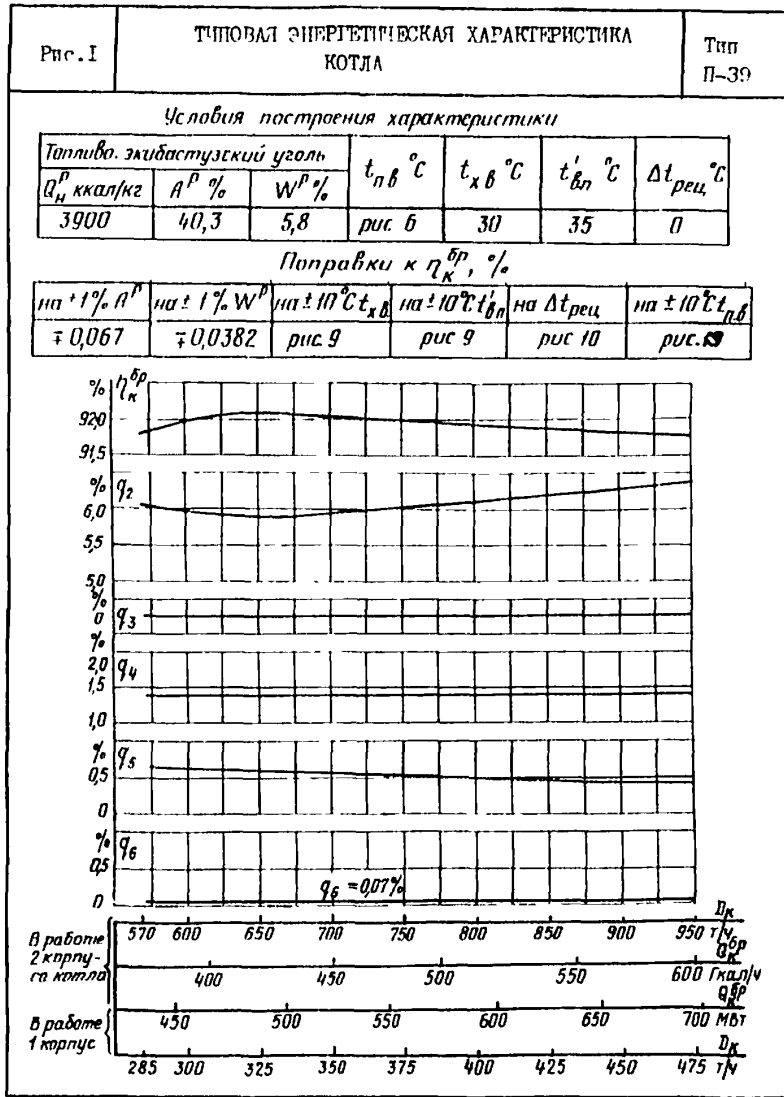 Рис.I
ТИПОВАЯ ЭНЕРГЕТИЧЕСКАЯ ХАРАКТЕРИСТИКА
КОТЛА
Тип
П-39
Условия построения характеристики
Топливо. экибастузский уголь
t пв °C
t хв °C
t' вп °C
Δt рец °C
Q н р ккал/кг
A р %
W р %
3900
40,3
5,8
рис. 6
30
35
0
Поправки к η к бр, %
на ±1% A р
на ± 1% W р
на ±10°C t хв
на ±10°C t' вп
на Δt рец
на ±10°C t п.в
∓0,067
∓0,0382
рис. 9
рис 9
рис 10
рис.
% η к бр
92,0
91,5
% q2
6,0
5,5
5,0
% q3
0
% q4
2,0
1,5
1,0
% q5
0,5
0
% q6
0,5
0
q6 = 0,07%
В работе 2 корпуса котла
570 600 650 700 750 800 850 900 950 Dк т/ч
400 450 500 550 600 Qк бр Гкал/ч
450 500 550 600 650 700 Qк бр МВт
В работе 1 корпус
285 300 325 350 375 400 425 450 475 Dк т/ч